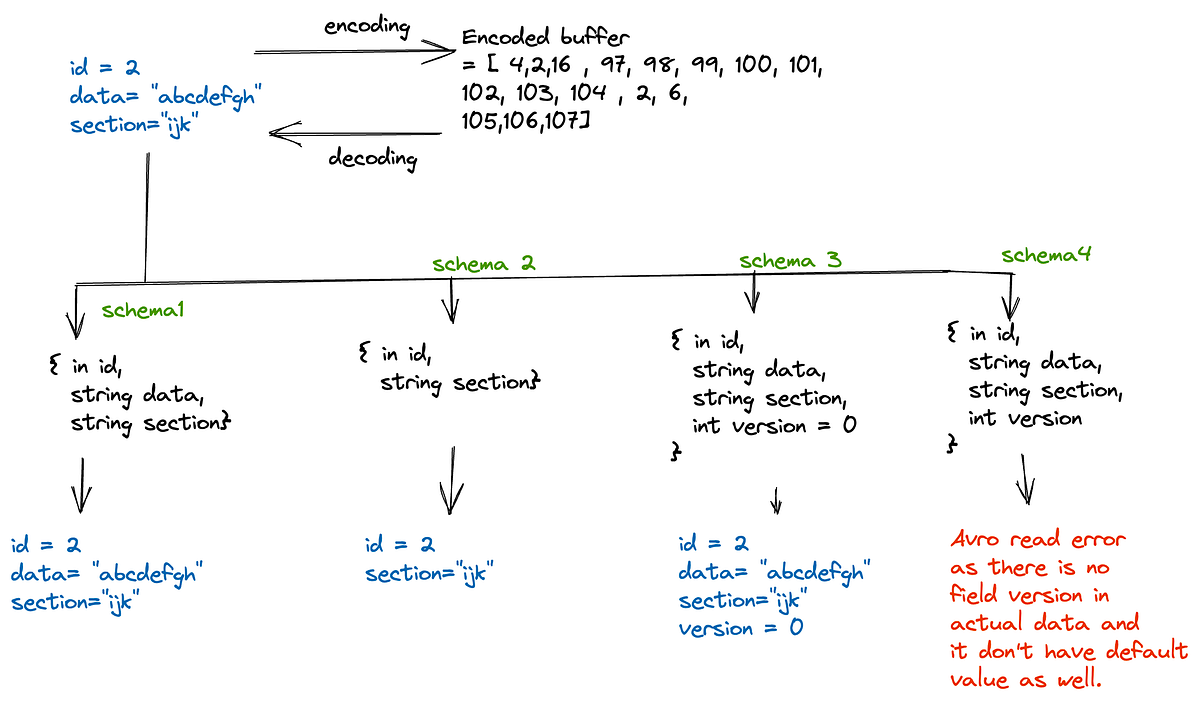 encoding
id = 2
data= "abcdefgh"
section="ijk"
Encoded buffer
= [ 4,2,16 , 97, 98, 99, 100, 101,
102, 103, 104 , 2, 6,
105,106,107]
decoding
schema1
{ in id,
string data,
string section}
id = 2
data= "abcdefgh"
section="ijk"
schema 2
{ in id,
string section}
id = 2
section="ijk"
schema 3
{ in id,
string data,
string section,
int version = 0
}
id = 2
data= "abcdefgh"
section="ijk"
version = 0
schema4
{ in id,
string data,
string section,
int version
}
Avro read error
as there is no
field version in
actual data and
it don't have default
value as well.